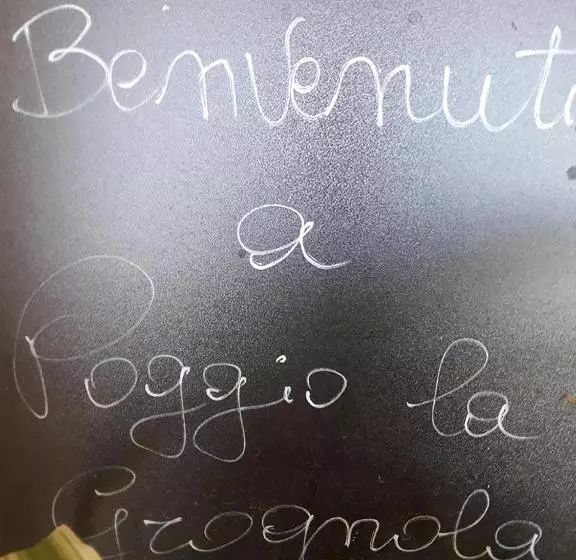 Benvenuti
a
Poggio la
Grognola